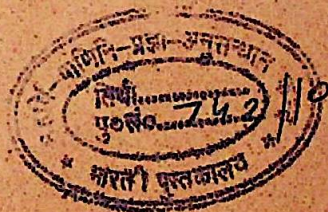 पाणिनि-प्रज्ञा-अनुसन्धान
तिथी..................
पु०सं०..742/10
* भारती पुस्तकालय *